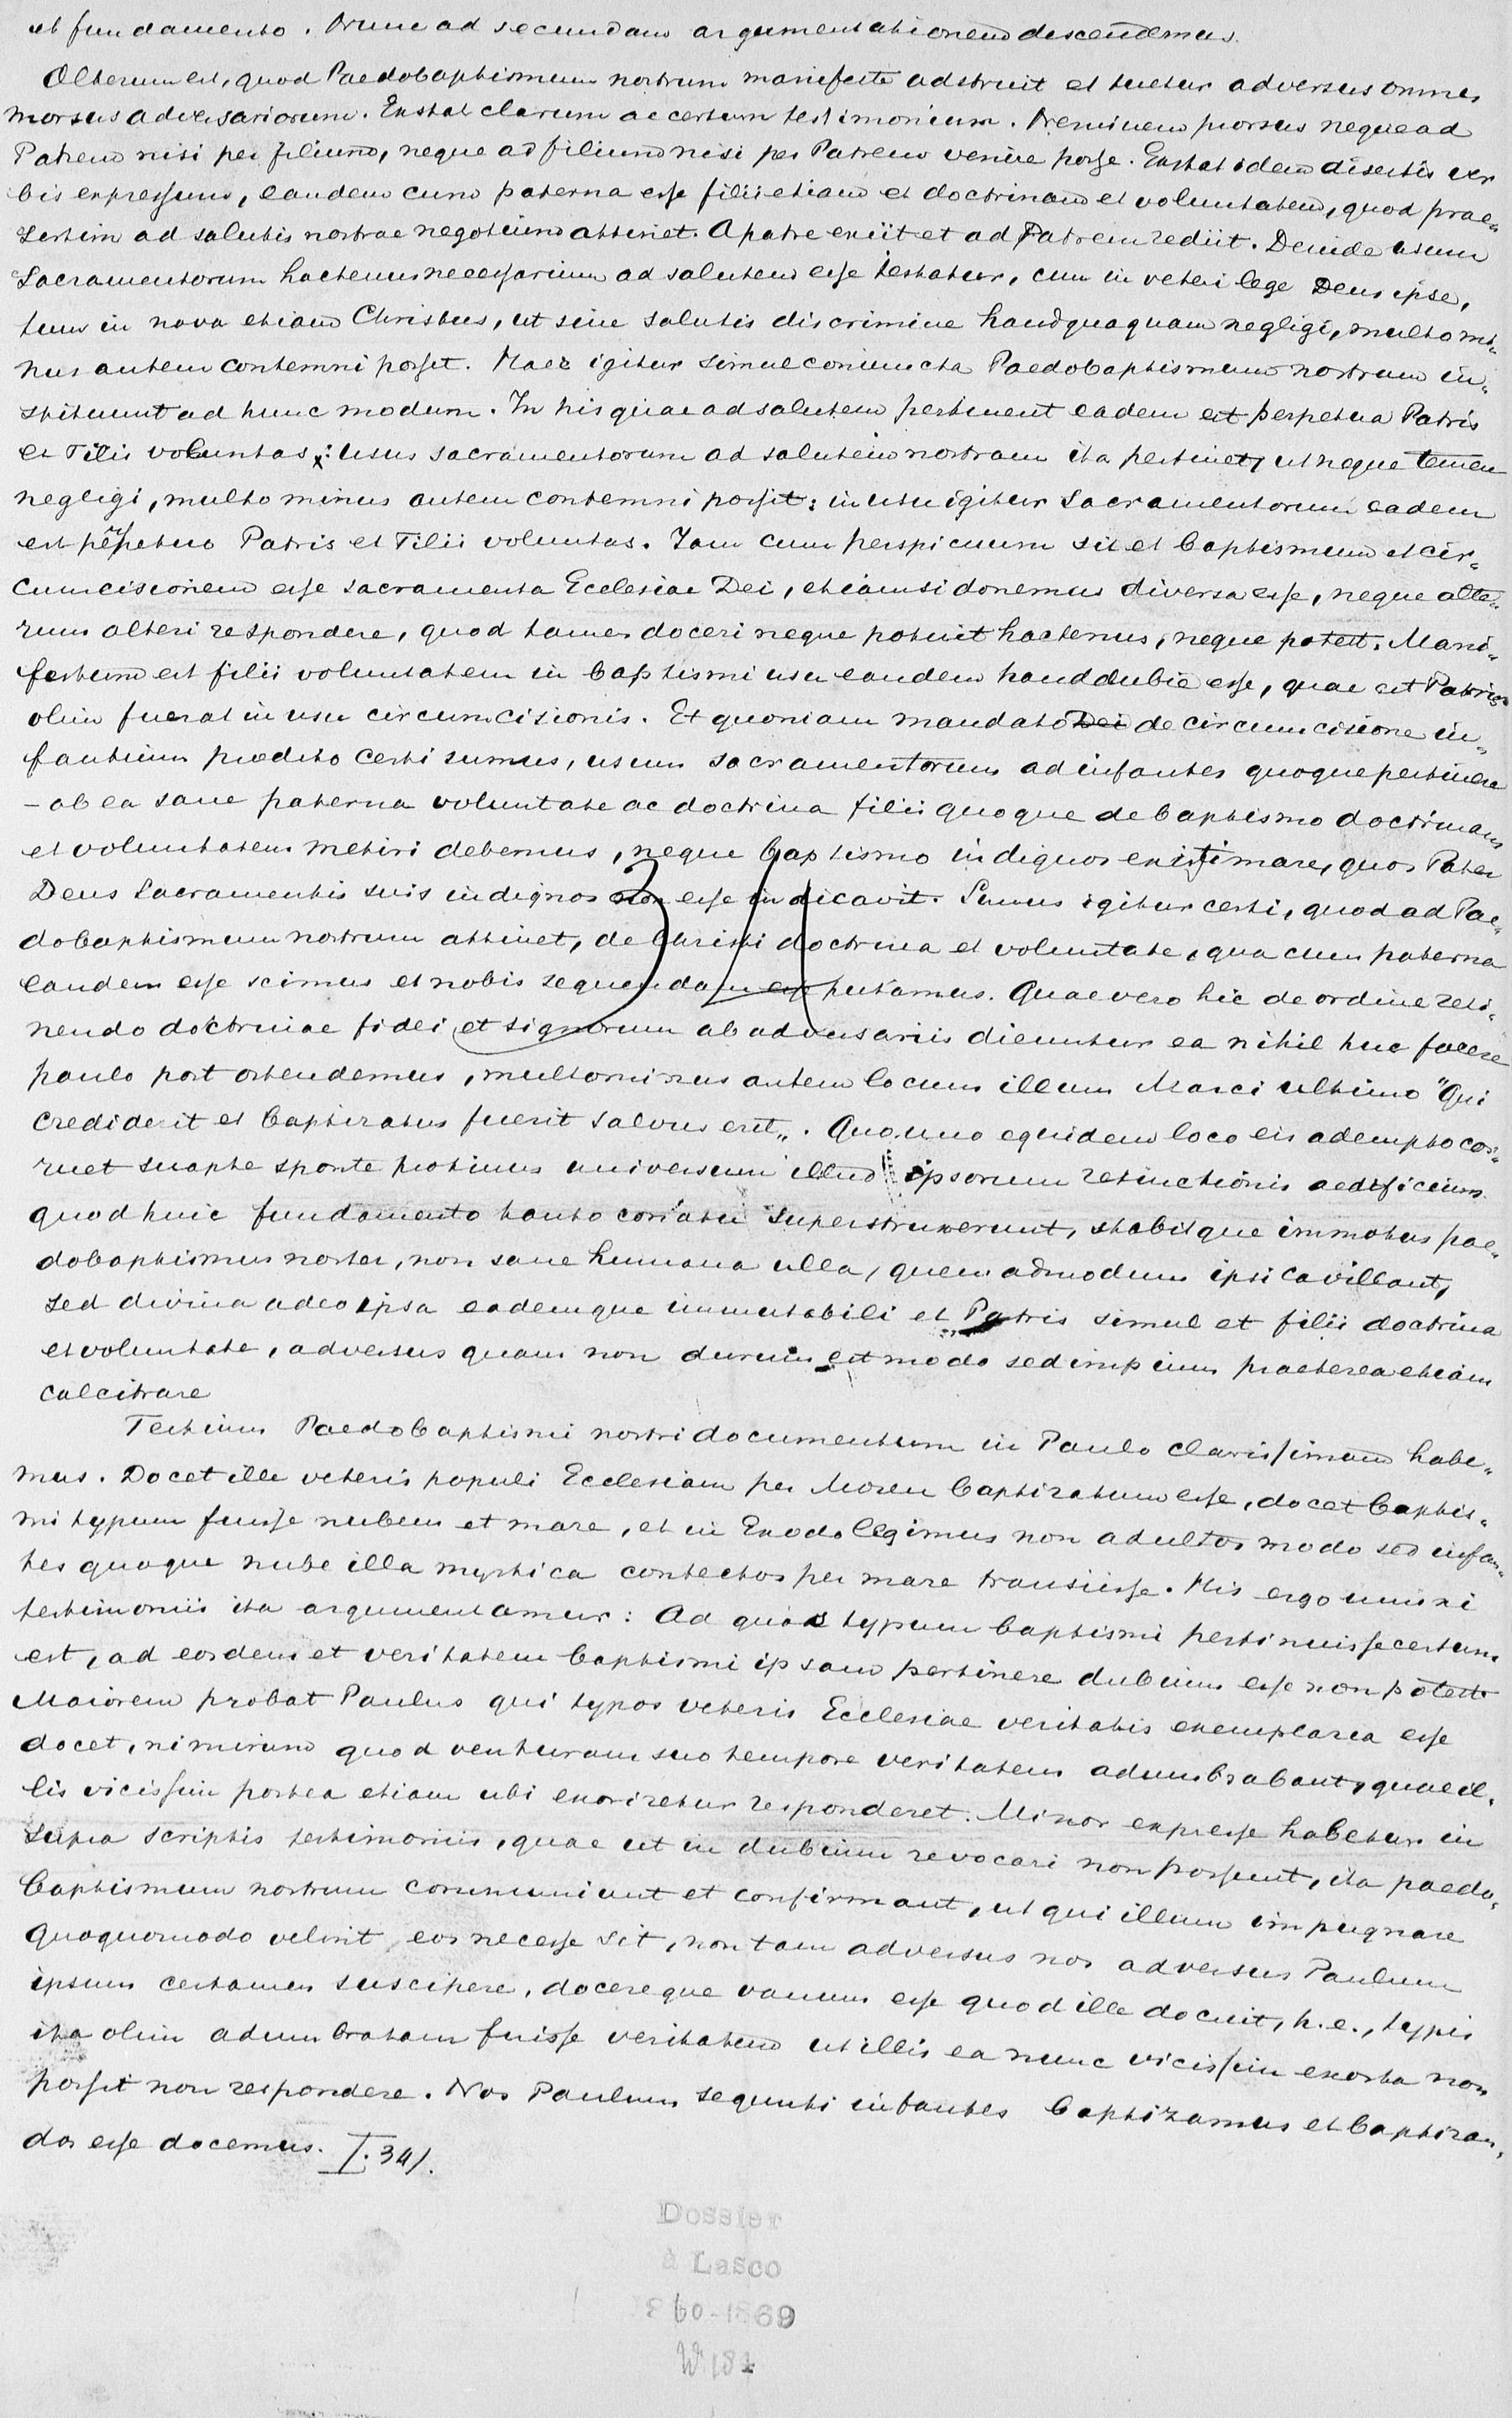 et fundamento. Nunc ad secundam argumentationem descendemus.
Alterum est, quod Paedobaptismum nostrum manifeste adstruit et tuetur adversus omnes
morsus adversariorum. Exstat clarum ac certum testimonium. Neminem prorsus neque ad
Patrem nisi per filium, neque ad filium nisi per Patrem venire posse. Exstat idem disertis ver
bis expressum, eandem cum paterna esse filii etiam et doctrinam et voluntatem, quod prae„
sertim ad salutis nostrae negotium attinet. A patre exiit et ad Patrem rediit. Deinde usum
Sacramentorum hactenus necessarium ad salutem esse testatur, cum in veteri lege Deus ipse,
tum in nova etiam Christus, ut sine salutis discrimine haudquaquam negligi, multo mi„
nus autem contemni posset. Haec igitur simul coniuncta Paedobaptismum nostrum in„
stituunt ad hunc modum. In his quae ad salutem pertinent eadem est perpetua Patris
et Filii voluntas: usus sacramentorum ad salutem nostram ita pertinet, ut neque temere
negligi, multo minus autem contemni possit: in usu igitur Sacramentorum eadem
est perpetuo Patris et Filii voluntas. Iam cum perspicuum sit et baptismum et cir„
cumcisionem esse sacramenta Ecclesiae Dei, etiamsi donemus diversa esse, neque alte„
rum alteri respondere, quod tamen doceri neque potuit hactenus, neque potest. Mani„
festum est filii voluntatem in baptismi usu eandem haud dubie esse, quae et Patris
olim fuerat in usu circumcisionis. Et quoniam mandato Dei de circumcisione in„
fantium prodito certi sumus, usum sacramentorum ad infantes quoque pertinere
– ab ea sane paterna voluntate ac doctrina filii quoque de baptismo doctrinam
et voluntatem metiri debemus, neque baptismo indignos existimare, quos Pater
Deus Sacramentis suis indignos non esse indicavit. Sumus igitur certi, quod ad Pae„
dobaptismum nostrum attinet, de Christi doctrina et voluntate, qua cum paterna
eandem esse scimus et nobis sequendam esse putamus. Quae vero hic de ordine reti„
nendo doctrinae fidei et signorum ab adversariis dicuntur ea nihil huc facere
paulo post ostendemus, multo minus autem locum illum Marci ultimo "Qui
crediderit et baptizatus fuerit salvus erit„. Quo uno equidem loco eis adempto cor„
ruet suapte sponte protinus universum illud ipsorum retinctionis aedificium
quod huic fundamento tanto conatu superstruxerunt, stabitque immotus pae„
dobaptismus noster, non sane humana ulla, quemadmodum ipsi cavillant,
sed divina adeo ipsa eademque immutabili et Patris simul et filii doctrina
et voluntate, adversus quam non durum est modo sed impium praeterea etiam
calcitrare
Tertium Paedobaptismi nostri documentum in Paulo clarissimum habe„
mus. Docet ille veteris populi Ecclesiam per Mosen baptizatum esse, docet baptis„
mi typum fuisse nubem et mare, et in Exodo legimus non adultos modo sed infan„
tes quoque nube illa mystica contectos per mare transiisse. His ergo unixi
testimoniis ita argumentamur: Ad quos typum baptismi pertinuisse certum
est, ad eosdem et veritatem baptismi ipsam pertinere dubium esse non potest
Maiorem probat Paulus qui typos veteris Ecclesiae veritatis exemplarea esse
docet, nimirum quod venturam suo tempore veritatem adumbrabant, quae il„
lis vicissim postea etiam ubi exoriretur responderet. Minor expresse habetur in
supra scriptis testimoniis, quae ut in dubium revocari non possunt, ita paedo„
baptismum nostrum communiunt et confirmant, ut qui illum impugnare
quoquomodo velint eos necesse sit, non tam adversus nos adversus Paulum
ipsum certamen suscipere, docereque vanum esse quod ille docuit, h.e., typis
ita olim adumbratam fuisse veritatem ut illis ea nunc vicissim exorta non
possit non respondere. Nos Paulum sequuti infantes baptizamus et baptizan„
dos esse docemus. I. 34/.
Dossier
à Lasco
1860-1869
W 184